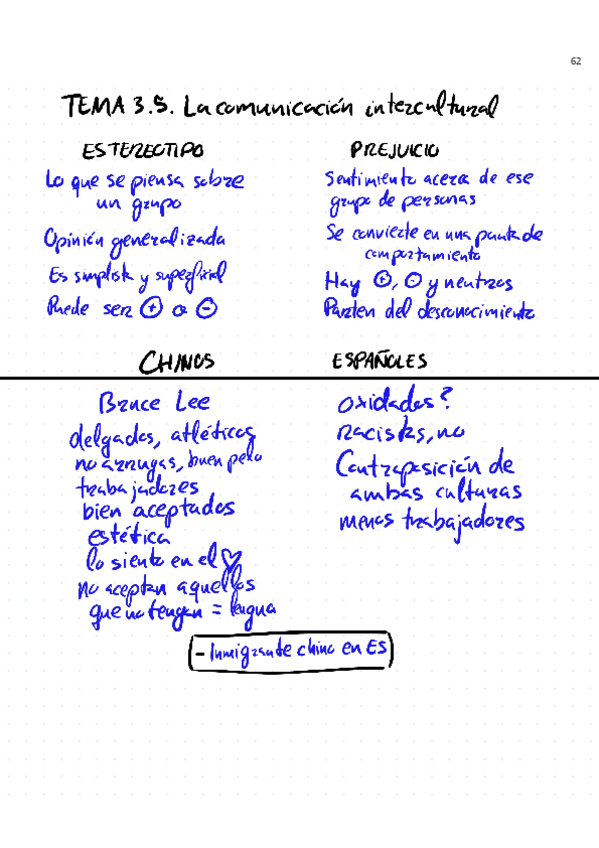 62
TEMA 3.5. La comunicación intercultural
ESTEREOTIPO
Lo que se piensa sobre
un grupo
Opinión generalizada
Es simplista y superficial
Puede ser ⊕ o ⊖
PREJUICIO
Sentimiento acerca de ese
grupo de personas
Se convierte en una pauta de
comportamiento
Hay ⊕, ⊖ y neutros
Parten del desconocimiento
CHINOS
Bruce Lee
delgados, atléticos
no arrugas, buen pelo
trabajadores
bien aceptados
estética
lo siento en el ♡
no aceptan aquellos
que no tengan = lengua
ESPAÑOLES
oxidados?
racistas, no
Contraposición de
ambas culturas
menos trabajadores
- Inmigrante chino en ES